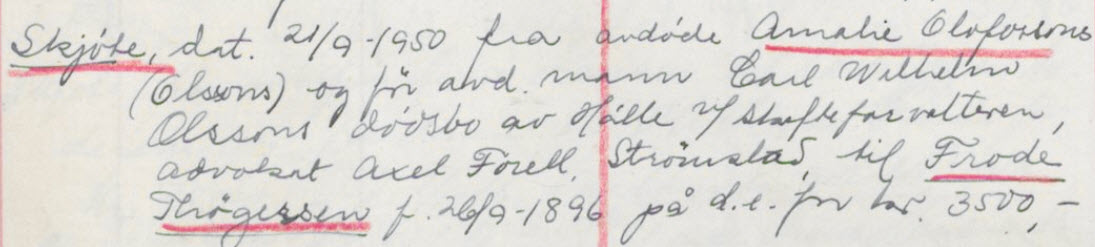 Skjöte, dat. 21/9-1950 fra avdöde Amalie Olofssons
(Olssons) og för avd. mann Carl Wilhelm
Olssons dödsbo av Hälle v/ skifteforvalteren,
advokat Axel Forell, Strömstad, til Frode
Thögersen f. 26/9-1896 på d.e. for kr. 3500,-